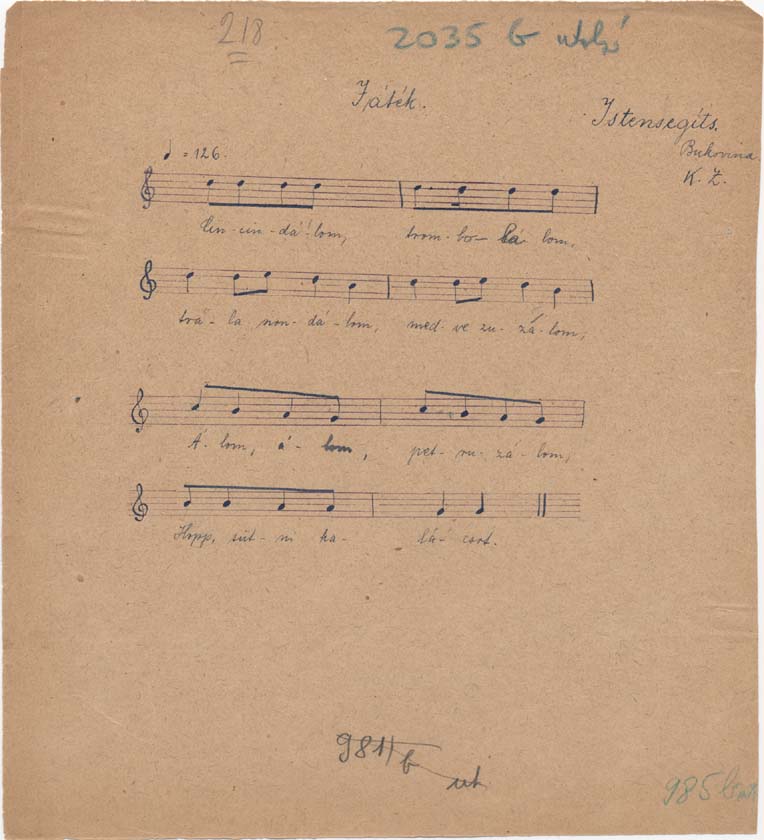 218
2035 b utolsó
Játék.
Istensegíts.
Bukovina
K. Z.
= 126.
Cin-cin-dá-lom, trom-bo-tá-lom,
trá-la non-dá-lom, med-ve zu-zá-lom,
Á-lom, á-lom, pet-ru-zá-lom,
Hopp, süt-ni ka-lá-csot.
981/b
ut
985 b